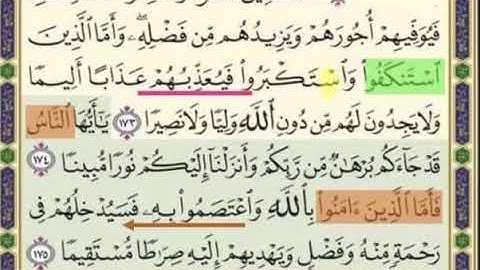 فَيُوَفِّيهِمْ أُجُورَهُمْ وَيَزِيدُهُم مِّن فَضْلِهِۦ ۖ وَأَمَّا ٱلَّذِينَ
ٱسْتَنكَفُوا۟ وَٱسْتَكْبَرُوا۟ فَيُعَذِّبُهُمْ عَذَابًا أَلِيمًا
وَلَا يَجِدُونَ لَهُم مِّن دُونِ ٱللَّهِ وَلِيًّا وَلَا نَصِيرًا ١٧٣ يَٰٓأَيُّهَا ٱلنَّاسُ
قَدْ جَآءَكُم بُرْهَٰنٌ مِّن رَّبِّكُمْ وَأَنزَلْنَآ إِلَيْكُمْ نُورًا مُّبِينًا ١٧٤
فَأَمَّا ٱلَّذِينَ ءَامَنُوا۟ بِٱللَّهِ وَٱعْتَصَمُوا۟ بِهِۦ فَسَيُدْخِلُهُمْ فِى
رَحْمَةٍ مِّنْهُ وَفَضْلٍ وَيَهْدِيهِمْ إِلَيْهِ صِرَٰطًا مُّسْتَقِيمًا ١٧٥